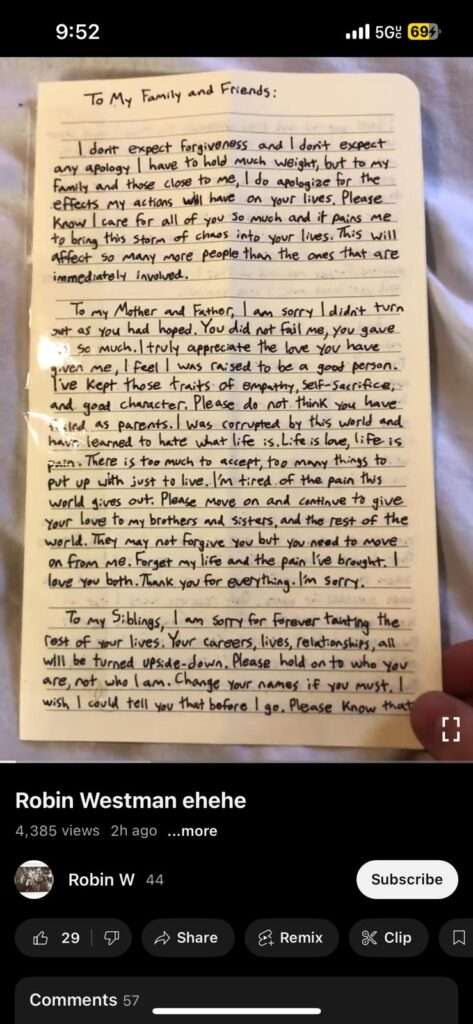 9:52
5G UC
69
To My Family and Friends:
I don't expect forgiveness and I don't expect
any apology I have to hold much weight, but to my
family and those close to me, I do apologize for the
effects my actions will have on your lives. Please
Know I care for all of you so much and it pains me
to bring this storm of chaos into your lives. This will
affect so many more people than the ones that are
immediately involved.
To my Mother and Father, I am sorry I didn't turn
out as you had hoped. You did not fail me, you gave
so much. I truly appreciate the love you have
given me, I feel I was raised to be a good person.
I've kept those traits of empathy, self-sacrifice,
and good character. Please do not think you have
failed as parents. I was corrupted by this world and
have learned to hate what life is. Life is love, life is
pain. There is too much to accept, too many things to
put up with just to live. I'm tired of the pain this
world gives out. Please move on and continue to give
your love to my brothers and sisters, and the rest of the
world. They may not forgive you but you need to move
on from me. Forget my life and the pain I've brought. I
love you both. Thank you for everything. I'm sorry.
To my Siblings, I am sorry for forever tanting the
rest of your lives. Your careers, lives, relationships, all
will be turned upside-down. Please hold on to who you
are, not who I am. Change your names if you must. I
wish I could tell you that before I go. Please Know that
Robin Westman ehehe
4,385 views 2h ago ...more
Robin W 44
Subscribe
29
Share
Remix
Clip
Comments 57